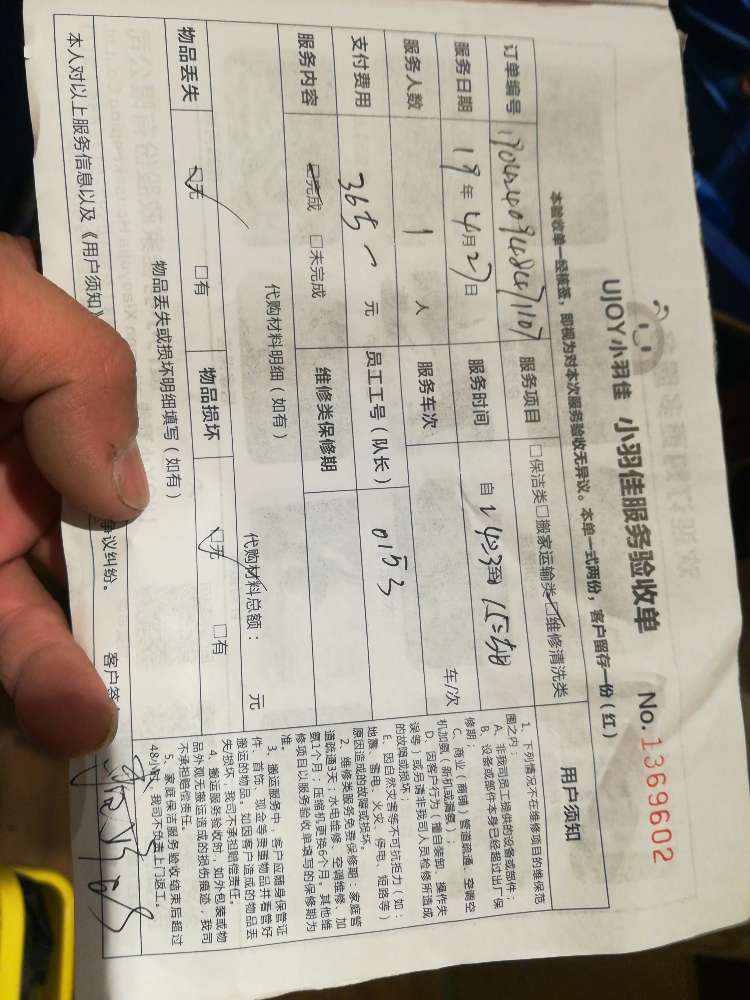 UJOY小羽佳 小羽佳服务验收单 No. 1369602
本验收单一经核签，即视为对本次服务验收无异议。本单一式两份，客户留存一份（红）
订单编号 服务项目 □保洁类□搬家运输类☑维修清洗类
服务日期 19年4月27日 服务时间 自 至
服务人数 1 人 服务车次 车/次
支付费用 365 元 员工工号（队长） 0153
服务内容 ☑完成 □未完成 维修类保修期
代购材料明细（如有） 代购材料总额： 元
物品丢失 ☑无 □有 物品损坏 ☑无 □有
物品丢失或损坏明细填写（如有）
本人对以上服务信息以及《用户须知》
争议纠纷。 客户签
用户须知
1、下列情况不在维修项目的维保范
围之内：
A、非我司员工提供的设备或部件；
B、设备或部件本身已经超过出厂保
修期；
C、商业（商铺）管道疏通、空调空
机加氨（新机或漏氨）；
D、因客户行为（擅自装卸、操作失
误等）或另请非我司人员检修所造成
的故障或损坏
E、因自然灾害等不可抗拒力（如：
地震、雷电、火灾、停电、短路等）
原因造成的故障或损坏.
2、维修类服务免费保修期：家庭管
道疏通3天；水电维修、空调维修、加
氨1个月；压缩机更换6个月。其他维
修项目以服务验收单填写的保修期为
准.
3、搬运服务中，客户应随身保管证
件、首饰、现金等贵重物品并看管好
搬运的物品。如因客户造成的物品丢
失/损坏，我司不承担赔偿责任。
4、搬运服务验收时，如外包装或物
品外观无搬运造成的损伤痕迹，我司
不承担赔偿责任。
5、家庭保洁服务验收结束后超过
48小时，我司不负责上门返工。